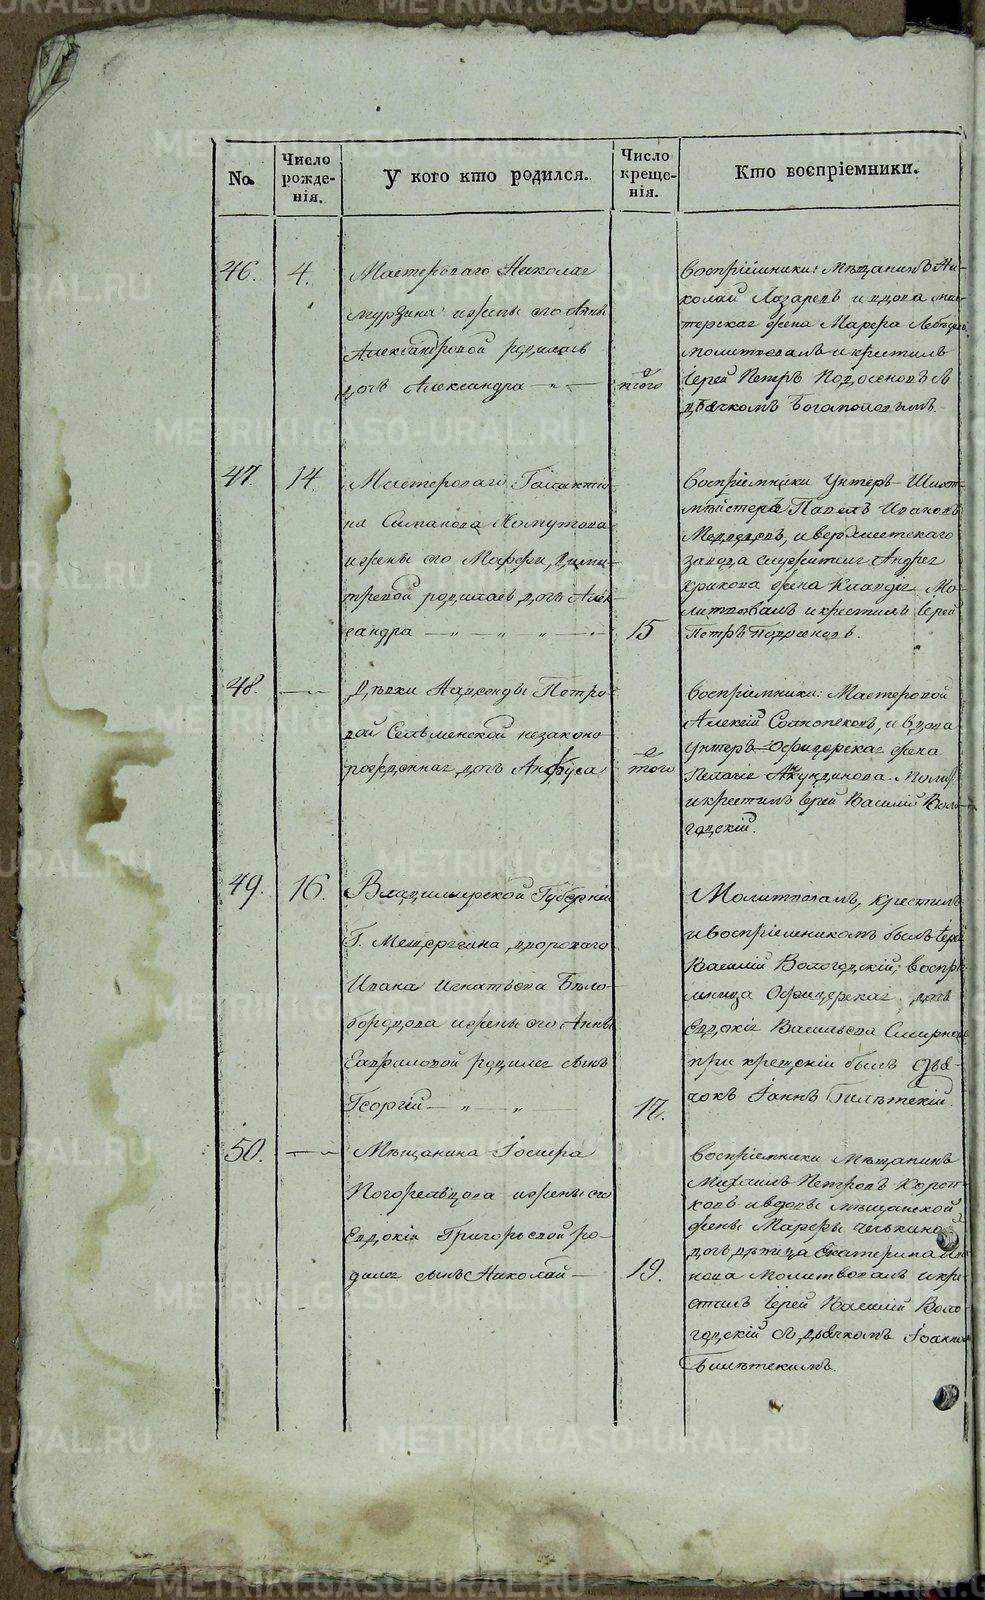 No.
Число рожде-нія.
У кого кто родился.
Число креще-нія.
Кто воспріемники.
46.
4.
Мастероваго Николая
Мурзина и жены его Анны
Александровой родилась
дочь Александра — „ —
того
Воспріемники: Мѣщанинъ Ни-
колай Лазаревъ и вдова ма-
стерская жена Марѳа
молитвовалъ и крестилъ
Іерей Петръ съ
дьячкомъ Богаполовымъ.
47.
14.
Мастероваго Галактіо-
на Хомутова
и жены его Марфы Дими-
тревой родилась дочь Алек-
сандра — „ — „ — „ —
15
Воспріемники Унтеръ-Шихт-
мейстеръ Павелъ Ивановъ
Медведевъ, и Верхъисетскаго
завода служителя Андрея
жена Клавдія Мо-
литвовалъ и крестилъ Іерей
Петръ
48.
— „
Дѣвки Петро-
вой незаконо-
рожденная дочь Анфуса
того
Воспріемники: Мастеровой
Алексій и вдова
Унтеръ-Офицерская жена
Пелагія Акундинова. Молит:
и крестилъ Іерей Василій Воло-
годскій.
49.
16.
Владимирской Губерніи
Г. двороваго
Ивана Игнатьева Бѣло-
бородова и жены его Анны
Гавриловой родился сынъ
Георгій — „ — „ —
17.
Молитвовалъ, крестилъ
и воспріемникомъ былъ Іерей
Василій Вологодскій, воспрі-
мница Офицерская дочь
Евдокія Васильева Смирнова
при крещеніи былъ дья-
чокъ Іоаннъ
50.
— „
Мѣщанина Іосифа
и жены его
Евдокіи Григорьевой ро-
дился сынъ Николай —
19.
Воспріемники Мѣщанинъ
Михаилъ Петровъ Корот-
ковъ и вдовы мѣщанской
жены Марфы
дочь дѣвица Екатерина Ива-
нова молитвовалъ и кре-
стилъ Іерей Василій Воло-
годскій съ дьячкомъ Іоанномъ
METRIKI.GASO-URAL.RU